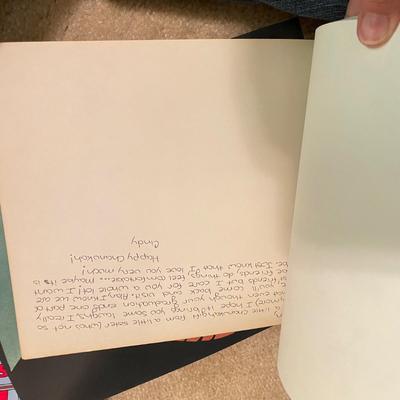 little Chanukah gift from a little sister (who's not so
anymore) I hope it brings you some laughs. I really
even though your graduation ends one part of
you'll come back and visit. I know we are
friends but I care for you a whole lot! I want
be friends, do things, feel maybe it's
Just know that I love you very much!
Happy Chanukah!
Cindy